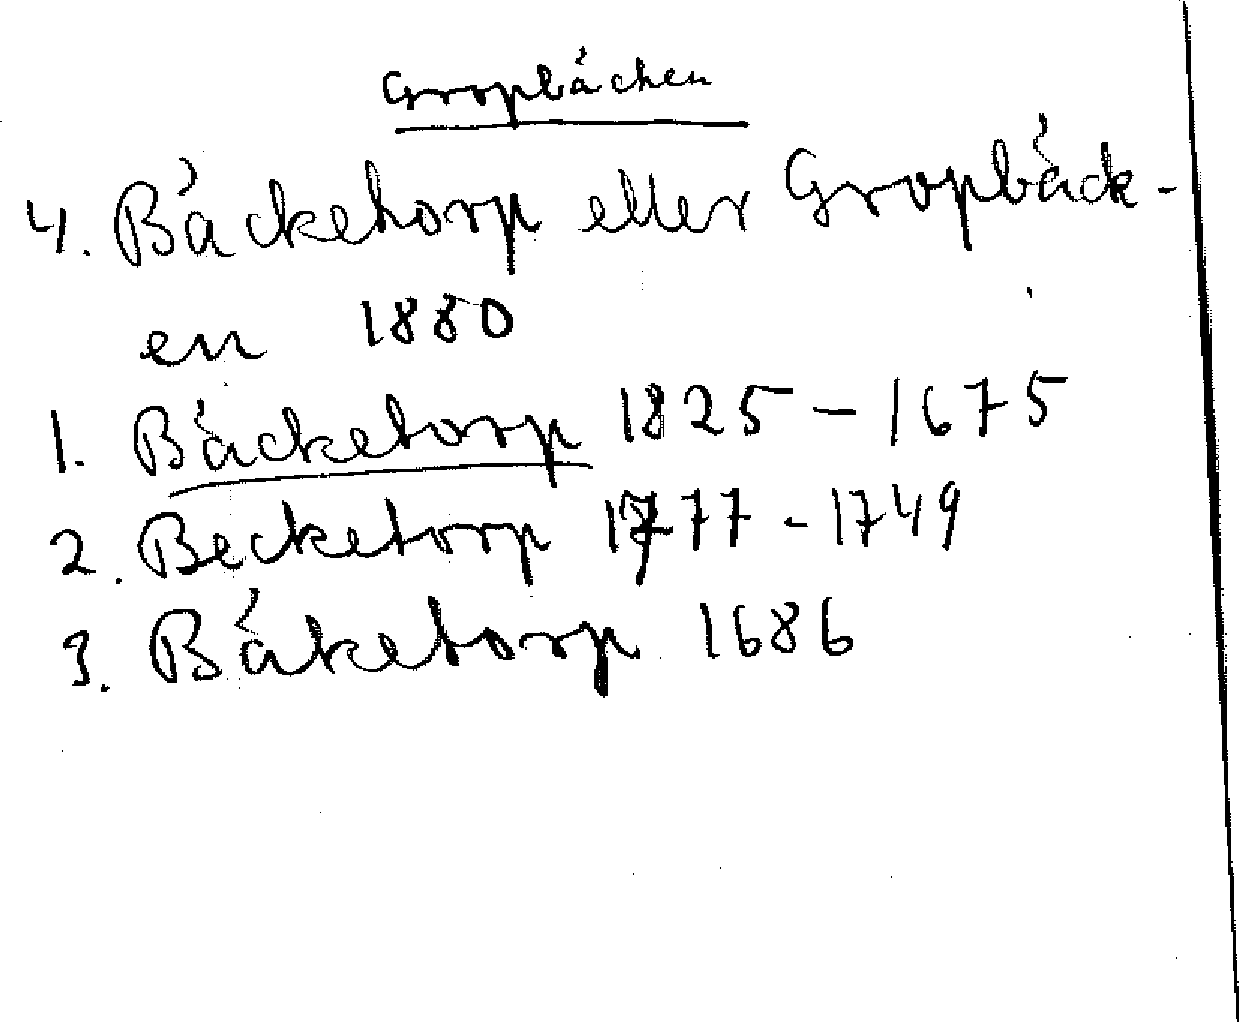 Gropbäcken
4. Bäcketorp eller Gropbäck-
en 1880
1. Bäcketorp 1825 - 1675
2. Becketorp 1777 - 1749
3. Bäketorp 1686